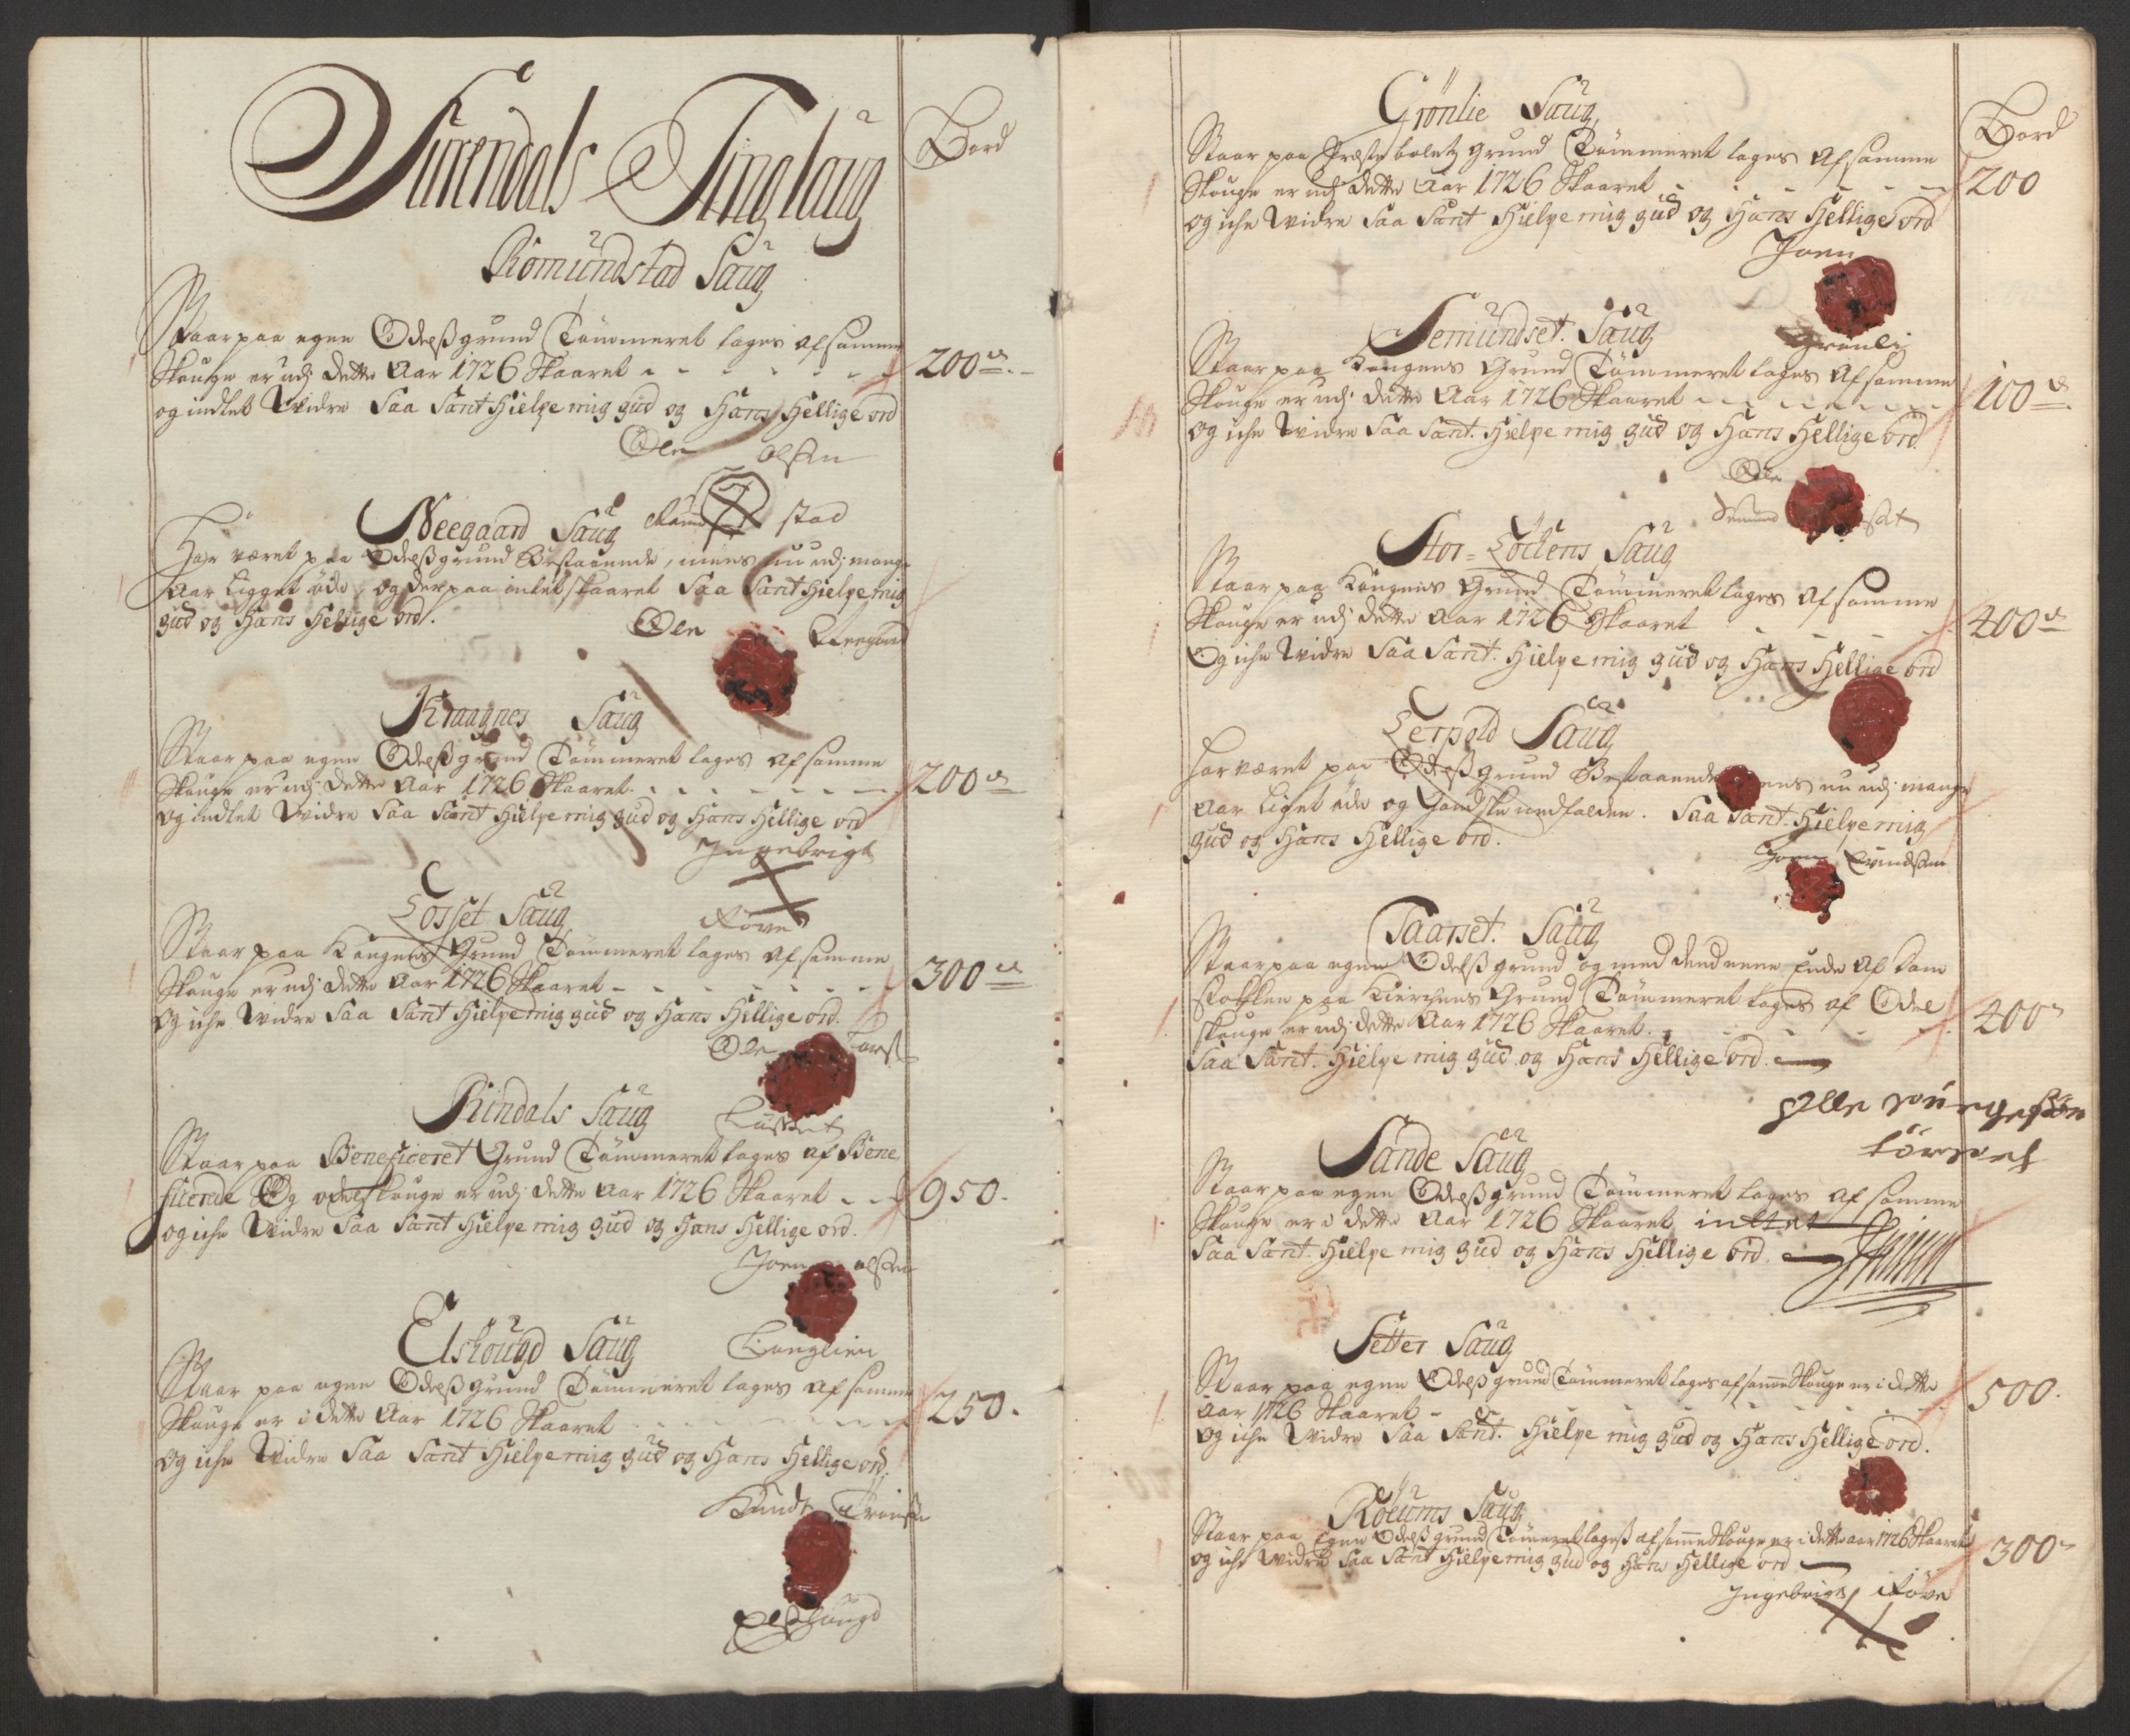 Surendals Tinglaug
Bord
Romundstad Saug
Staar paa egen Odelß grund Tømmeret tages af samme
Skouge er udj dette Aar 1726 Skaaret - - - - - -
200 -
og indtet Widre Saa Sant Hielpe mig gud og Hans Hellige ord
Ole olsen
Romund stad
Neegaard Saug
Har været paa Odelß grund Bestaaende, mens nu udj mange
Aar Ligget øde, og derpaa intet skaaret Saa Sant Hielpe mig
gud og Hans Hellige ord.
Ole Neegaard
Kraagnes Saug
Staar paa egen Odelß grund Tømmeret tages af samme
Skouge er udj dette Aar 1726 Skaaret - - - - - -
200
og indtet Widre Saa Sant Hielpe mig gud og Hans Hellige ord
Ingebrigt
Røve
Losset Saug
Staar paa Kongens Grund Tømmeret tages af samme
Skouge er udj dette Aar 1726 Skaaret - - - - - -
300
og iche Widre Saa Sant Hielpe mig gud og Hans Hellige ord.
Ole Lars
Lusset
Rindals Saug
Staar paa Beneficeret Grund Tømmeret tages af Bene
ficerede Og odelskouge er udj dette Aar 1726 Skaaret - -
950.
og iche Widre Saa Sant Hielpe mig gud og Hans Hellige ord.
Joen olsen
Langlien
Elshougd Saug
Staar paa egen Odelß grund Tømmeret tages af samme
Skouge er i dette Aar 1726 Skaaret - - - - - -
250.
og iche Widre Saa Sant Hielpe mig gud og Hans Hellige ord.
Knudt
Elshougd
Grønlie Saug
Bord
Staar paa Præste bolets grund Tømmeret tages af samme
Skouge er udj dette Aar 1726 Skaaret - - - - - -
200
og iche Widre Saa Sant Hielpe mig gud og Hans Hellige ord
Joen
Grønli
Semundset Saug
Staar paa Kongens Grund Tømmeret tages af samme
Skouge er udj dette Aar 1726 Skaaret - - - - - -
100
og iche Widre Saa Sant Hielpe mig gud og Hans Hellige ord.
Ole
Semund set
Stor-Lochens Saug
Staar paa Kongens Grund Tømmeret tages af samme
Skouge er udj dette Aar 1726 Skaaret - - - -
400
Og iche Widre Saa Sant Hielpe mig gud og Hans Hellige ord
Lerpold Saug
Har været paa Odelß grund Bestaaende mens nu udj mange
Aar Liget øde og Gandske nedfalden. Saa Sant Hielpe mig
gud og Hans Hellige ord.
Joen Evindsen
Taarset Saug
Staar paa egen Odelß grund og med dend eene Ende af Dam
stochen paa Kierchens Grund Tømmeret tages af Odel
skouge er udj dette Aar 1726 Skaaret - - - -
400
Saa Sant Hielpe mig gud og Hans Hellige ord.
Sande Saug
Staar paa egen Odelß grund Tømmeret tages af samme
Skouge er i dette Aar 1726 Skaaret indtet
Saa Sant Hielpe mig gud og Hans Hellige ord.
Setter Saug
Staar paa egen Odelß grund Tømmeret tages af samme Skouge er i dette
Aar 1726 Skaaret - - - - - -
500.
og iche Widre Saa Sant Hielpe mig gud og Hans Hellige ord.
Røeums Saug
Staar paa Egen Odelß grund Tømmeret tageß af samme Skouge er i dette aar 1726 Skaaret
300
og iche widre Saa Sant Hielpe mig gud og Hans Hellige ord
Ingebrigt Røve